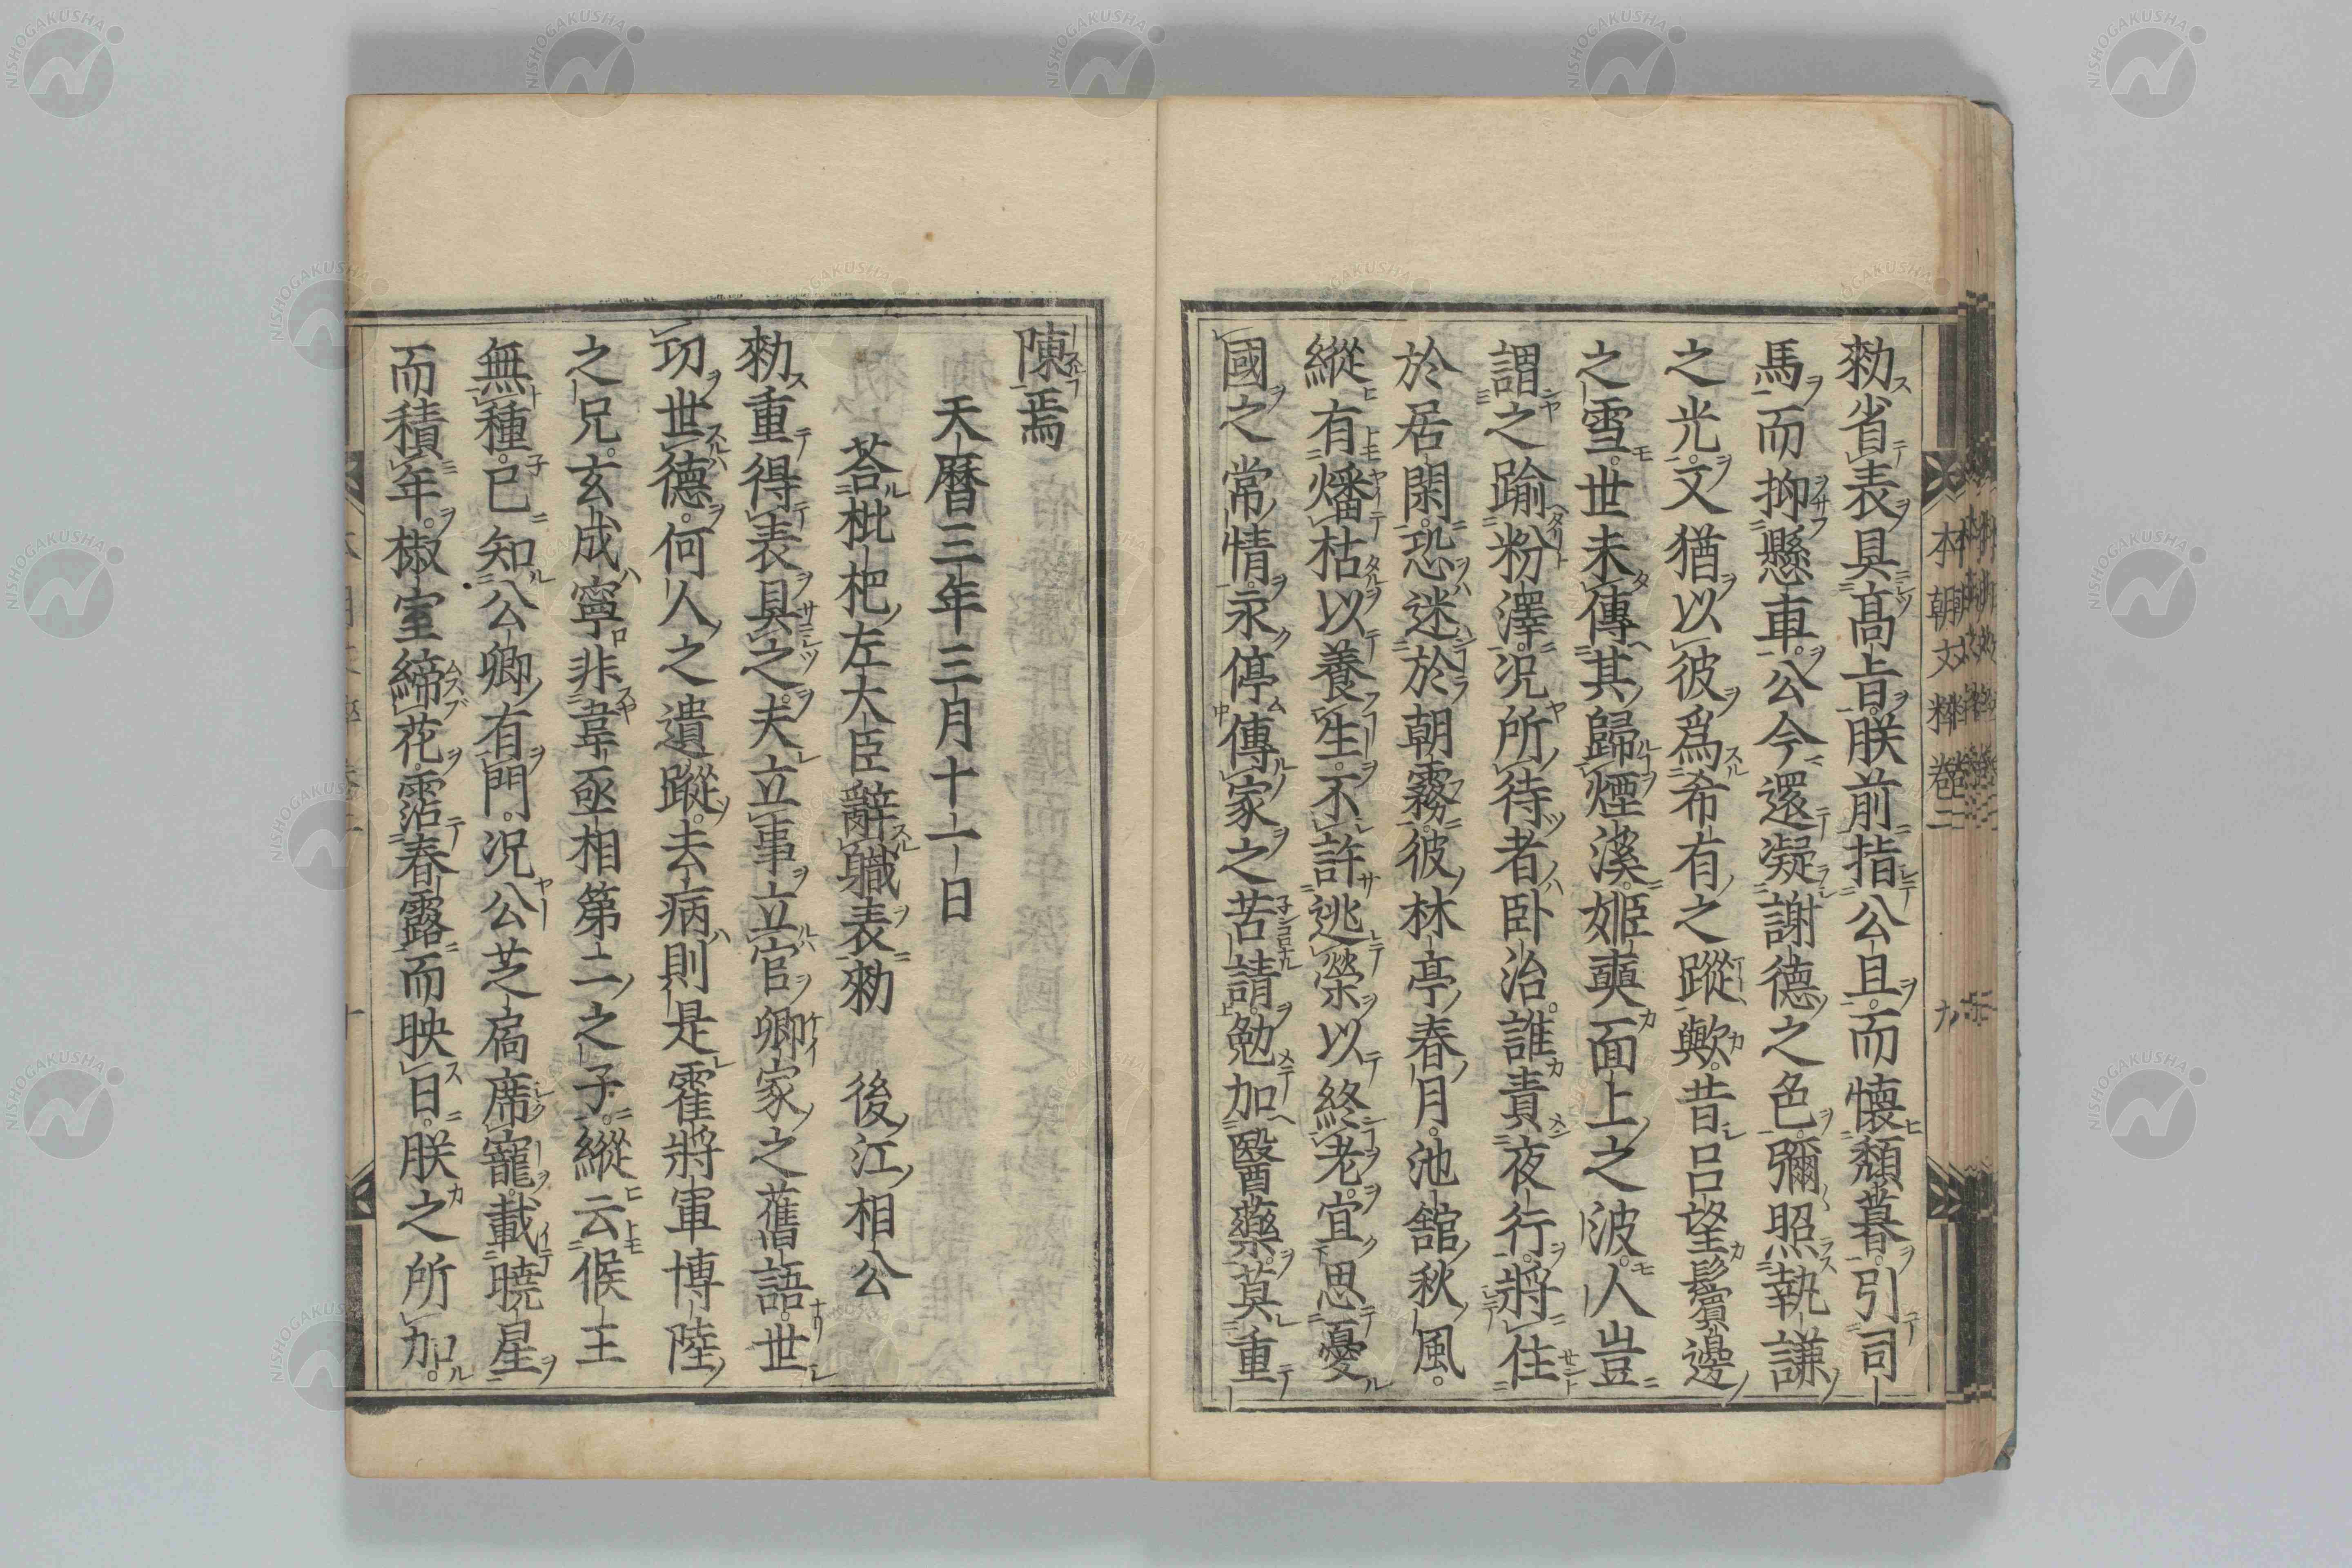 勑省表具高旨朕前指公且而懐頽暮引司
馬而抑懸車公今還凝謝德之色彌照執謙
之光文猶以彼爲希有之蹤歟昔呂望鬢邊
之雪世未傳其歸煙溪姬奭面上之波人豈
謂之踰粉澤況所待者卧治誰責夜行將住
於居閑恐迷於朝霧彼林亭春月池舘秋風
縱有燔枯以養生不許逃榮以終老宜思憂
國之常情永停傳家之苦請勉加醫藥莫重
陳焉
天曆三年三月十一日
荅枇杷左大臣辭職表勑 後江相公
勑重得表具之夫立事立官卿家之舊語世
功世德何人之遺蹤去病則是霍將軍博陸
之兄玄成寧非韋亟相第二之子縱云候王
無種已知公卿有門況公芝扃席寵載曉星
而積年椒室締花霑春露而映日朕之所加
本朝文粹卷二 九